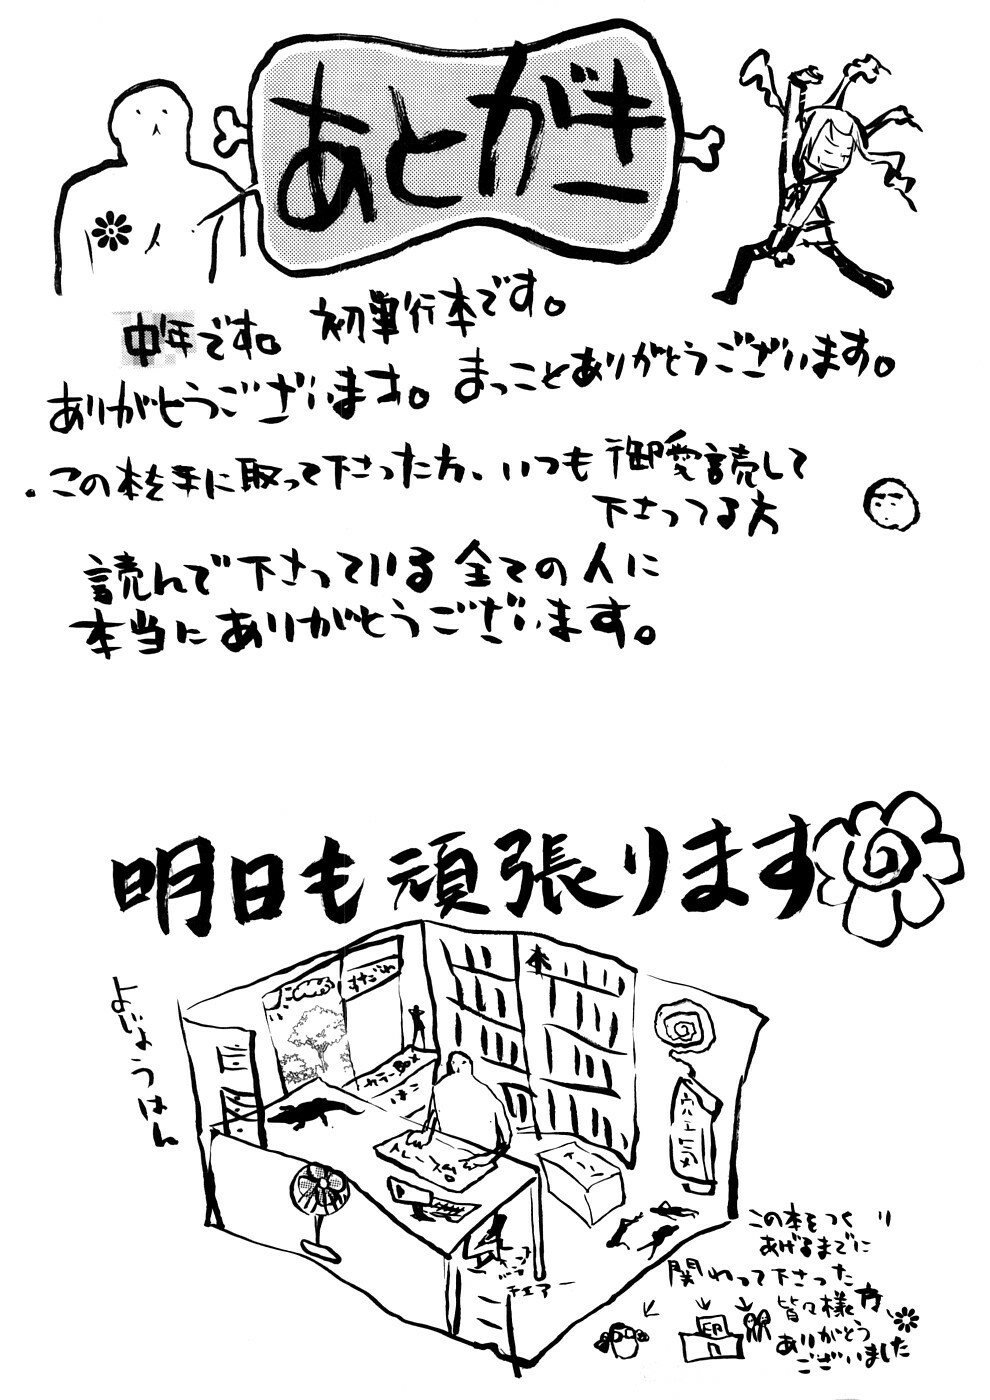 あとがき
中年です。 初単行本です。
ありがとうございます。 まっことありがとうございます。
この本を手に取って下さった方、いつも御愛読して
下さってる方
読んで下さっている全ての人に
本当にありがとうございます。
明日も頑張ります
よじょうはん
すだれ
本
カラーBOX
トレース台
チェアー
この本をつくり
あげるまでに
関わって下さった
皆々様方、
ありがとう
ございました